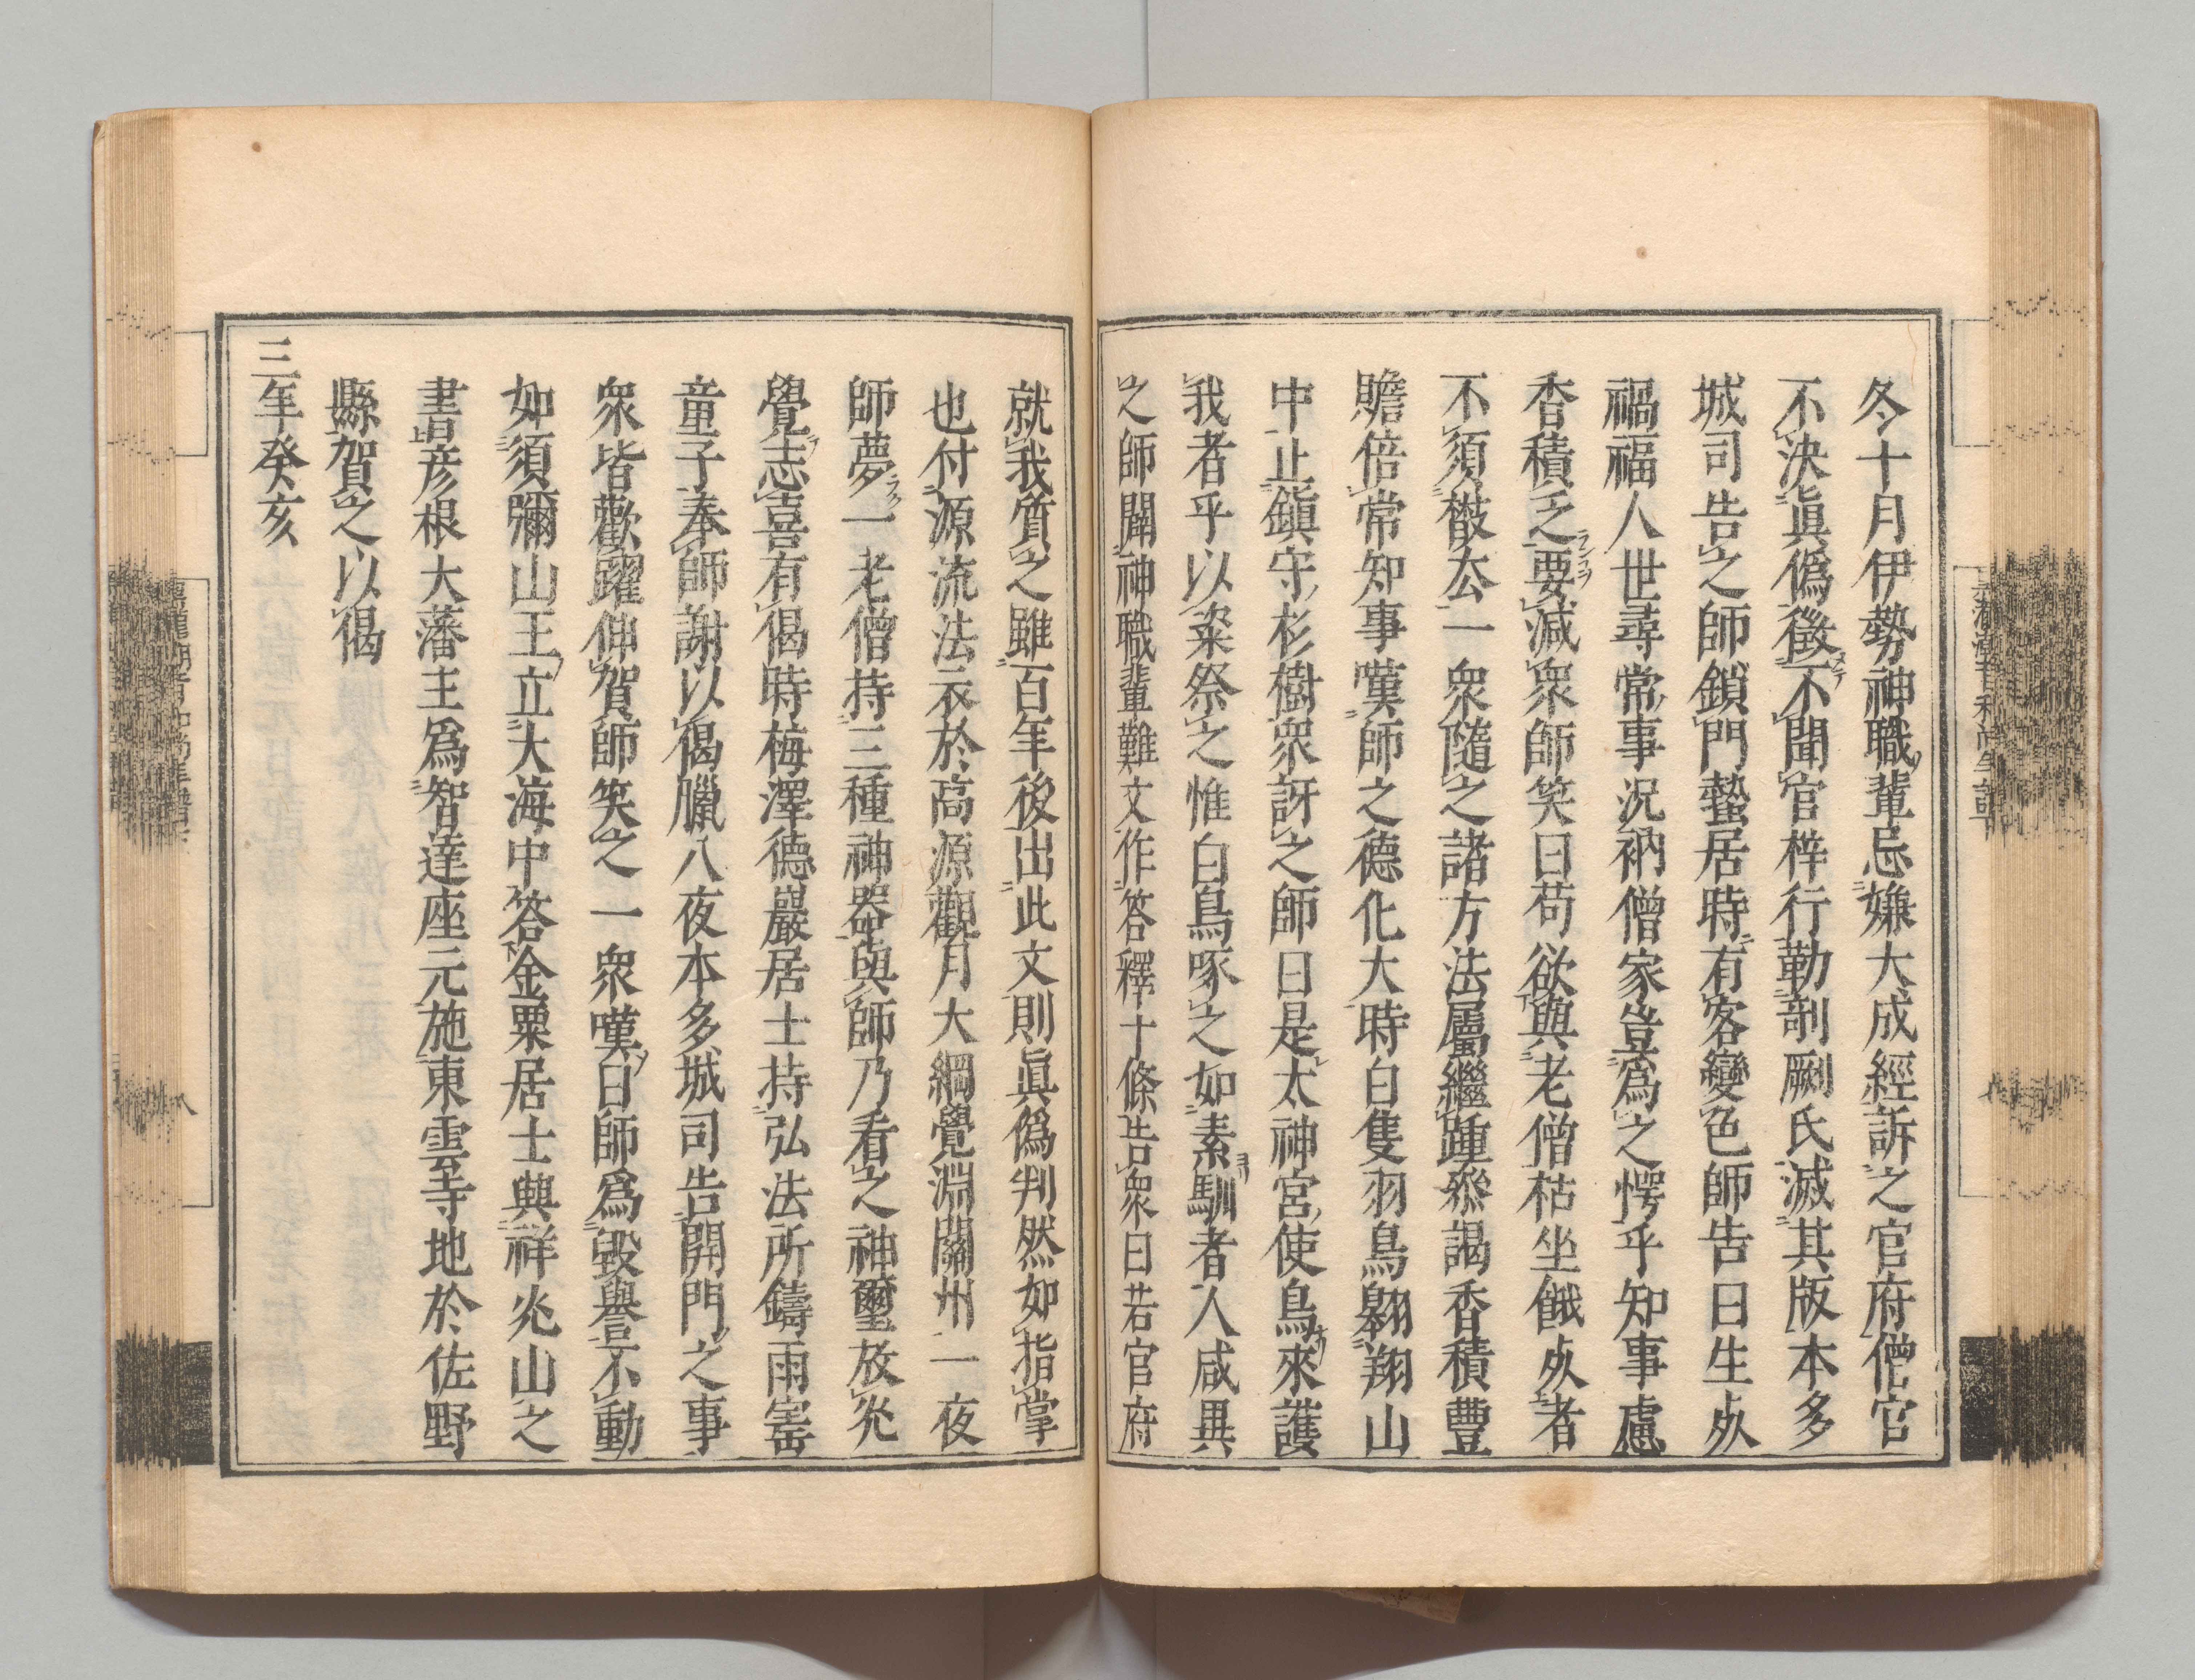 冬十月伊勢神職輩忌嫌大成經訴之官府僧官
不決眞僞徵不聞官梓行勒剞劂氏滅其版本多
城司告之師鎖門蟄居時有客變色師告曰生处
禍福人世尋常事況衲僧家豈爲之愕乎知事慮
香積乏要減衆師笑曰苟欲與老僧枯坐餓处者
不須散去一衆隨之諸方法屬繼踵叅謁香積豐
贍倍常知事嘆師之德化大時白隻羽鳥翱翔山
中止鎮守杉樹衆訝之師曰是太神宮使鳥來護
我者乎以粢祭之惟白鳥啄之如素馴者人咸異
之師聞神職輩難文作答釋十條告衆曰若官府
就我質之雖百年後出此文則眞僞判然如指掌
也付源流法衣於高源觀月大綱覺淵關州一夜
師夢一老僧持三種神器與師乃看之神璽放光
覺志喜有偈時梅澤德巖居士持弘法所鑄雨寶
童子奉師謝以偈臘八夜本多城司告開門之事
衆皆歡躍伸賀師笑之一衆嘆曰師爲毀譽不動
如須彌山王立大海中答金粟居士與祥光山之
書彦根大藩主爲智達座元施東雲寺地於佐野
縣賀之以偈
三年癸亥